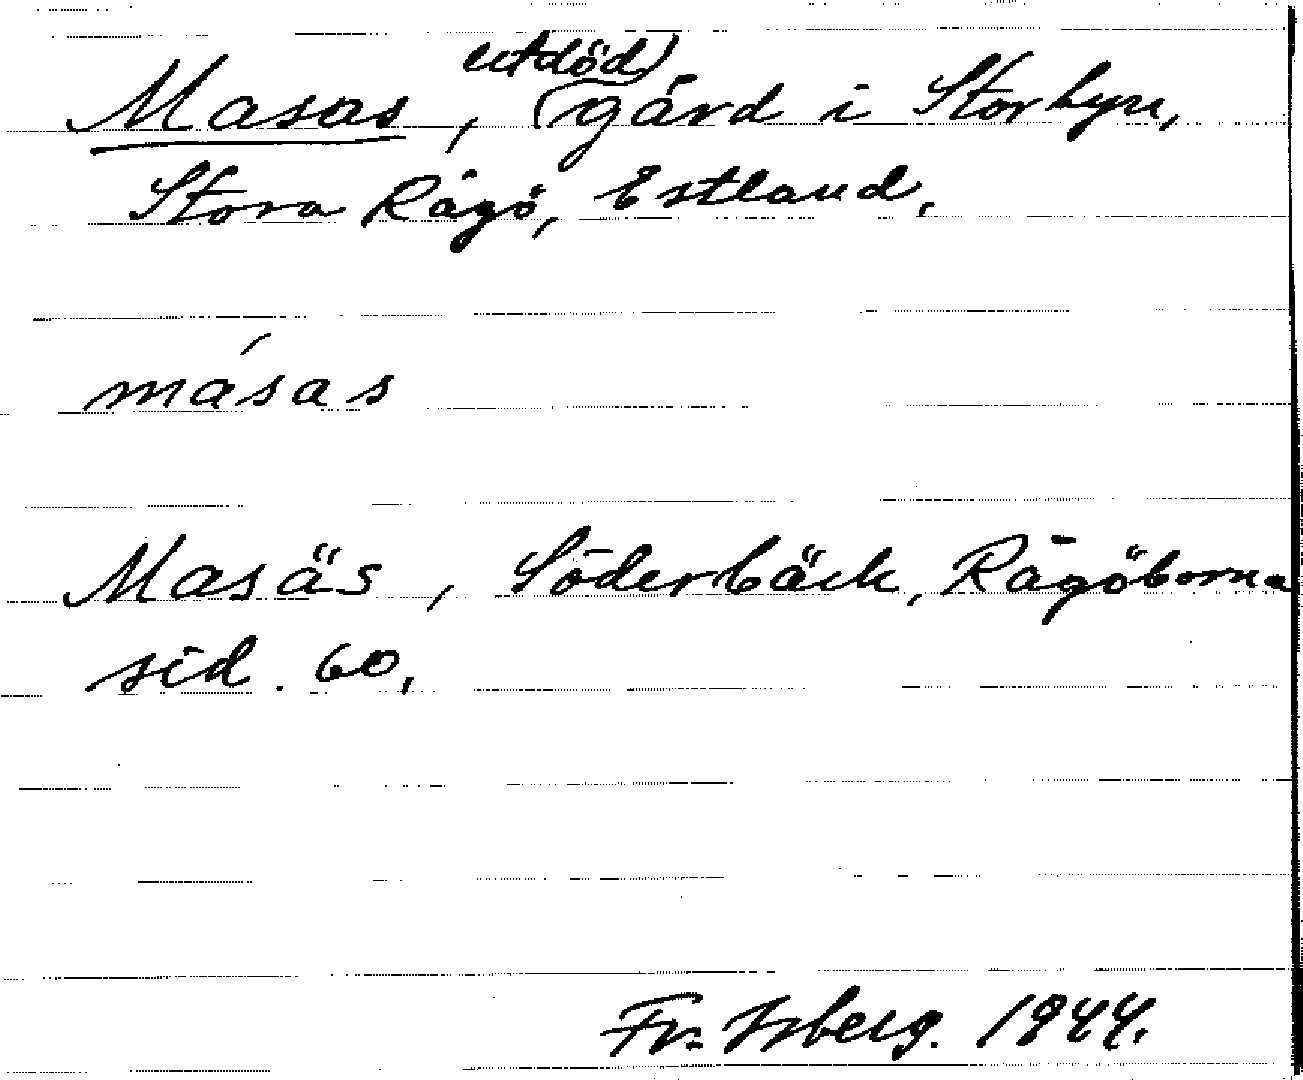 Masas, utdöd gård i Storbyn,
Stora Rågö, Estland.
másas
Masäs, Söderbäck, Rågöborna
sid. 60.
Fr. Isberg. 1944.